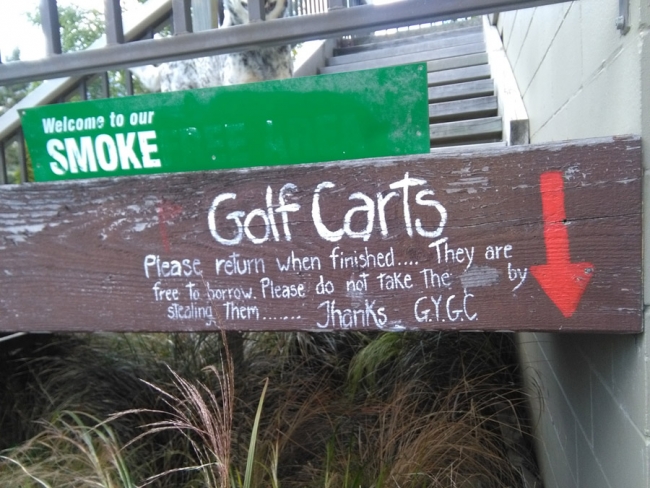 Welcome to our
SMOKE
Golf Carts
Please return when finished.... They are
free to borrow. Please do not take The by
stealing Them....... Thanks G.Y.G.C.